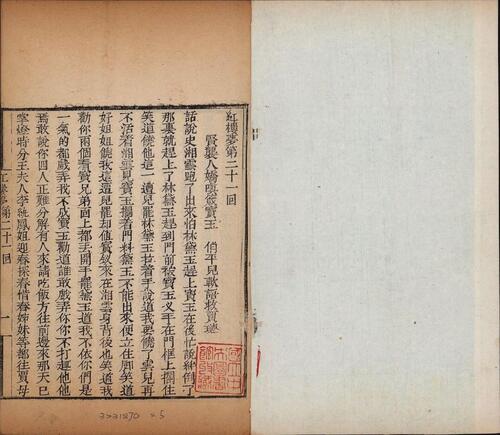 紅樓夢第二十一回
賢襲人嬌嗔箴寶玉　俏平兒軟語救賈璉
話說史湘雲跑了出來怕林黛玉趕上寶玉在後忙說絆倒了
那裏就趕上了林黛玉趕到門前被寶玉叉手在門框上攔住
笑道饒他這一遭兒罷林黛玉拉着手說道我要饒了雲兒再
不活着湘雲見寶玉攔着門料黛玉不能出來便立住脚笑道
好姐姐饒我這遭兒罷却值寶釵來在湘雲身背後也笑道我
勸你兩個看寶兄弟面上都丢開手罷黛玉道我不依你們是
一氣的都戲弄我不成寶玉勸道誰敢戲弄你你不打趣他他
焉敢說你四人正難分解有人來請吃飯方往前邊來那天已
掌燈時分王夫人李紈鳳姐迎春探春惜春姊妹等都往賈母
紅樓夢第二十一回
一